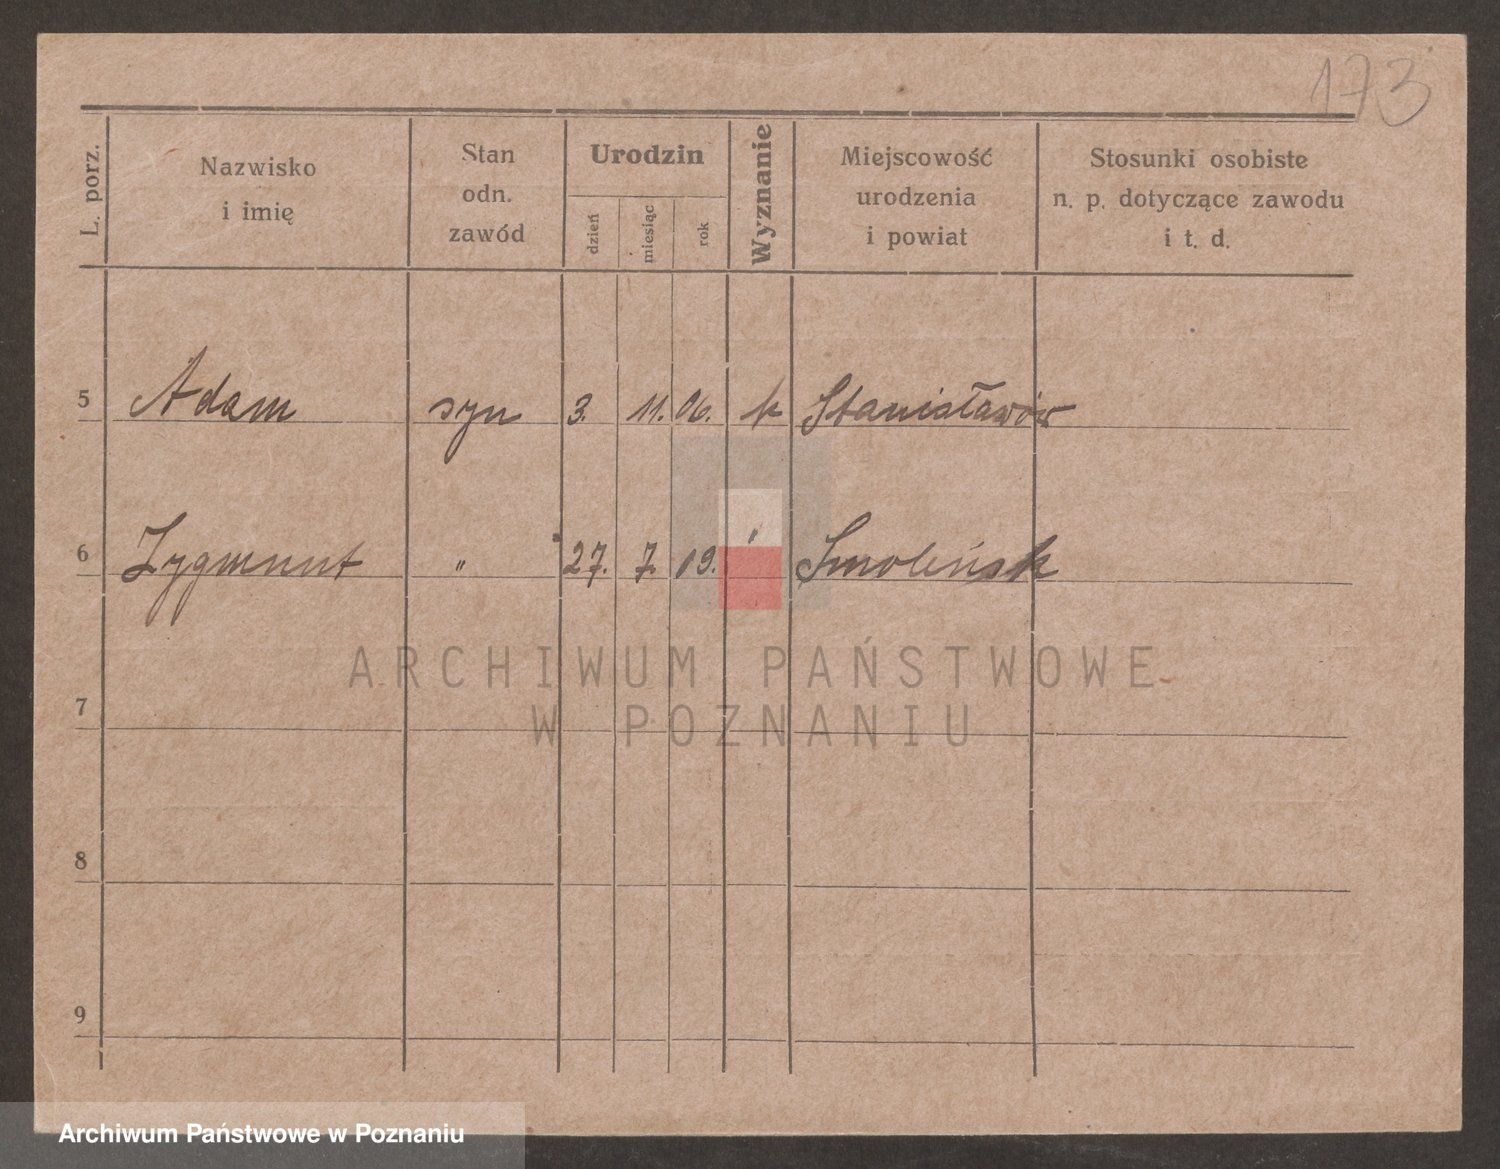 173
L. porz.
Nazwisko
i imię
Stan
odn.
zawód
Urodzin
dzień
miesiąc
rok
Wyznanie
Miejscowość
urodzenia
i powiat
Stosunki osobiste
n. p. dotyczące zawodu
i t. d.
5 Adam syn 3. 11. 06. k Stanisławów
6 Zygmunt " 27. 7. 09. " Smoleńsk
ARCHIWUM PAŃSTWOWE
W POZNANIU
7
8
9
Archiwum Państwowe w Poznaniu